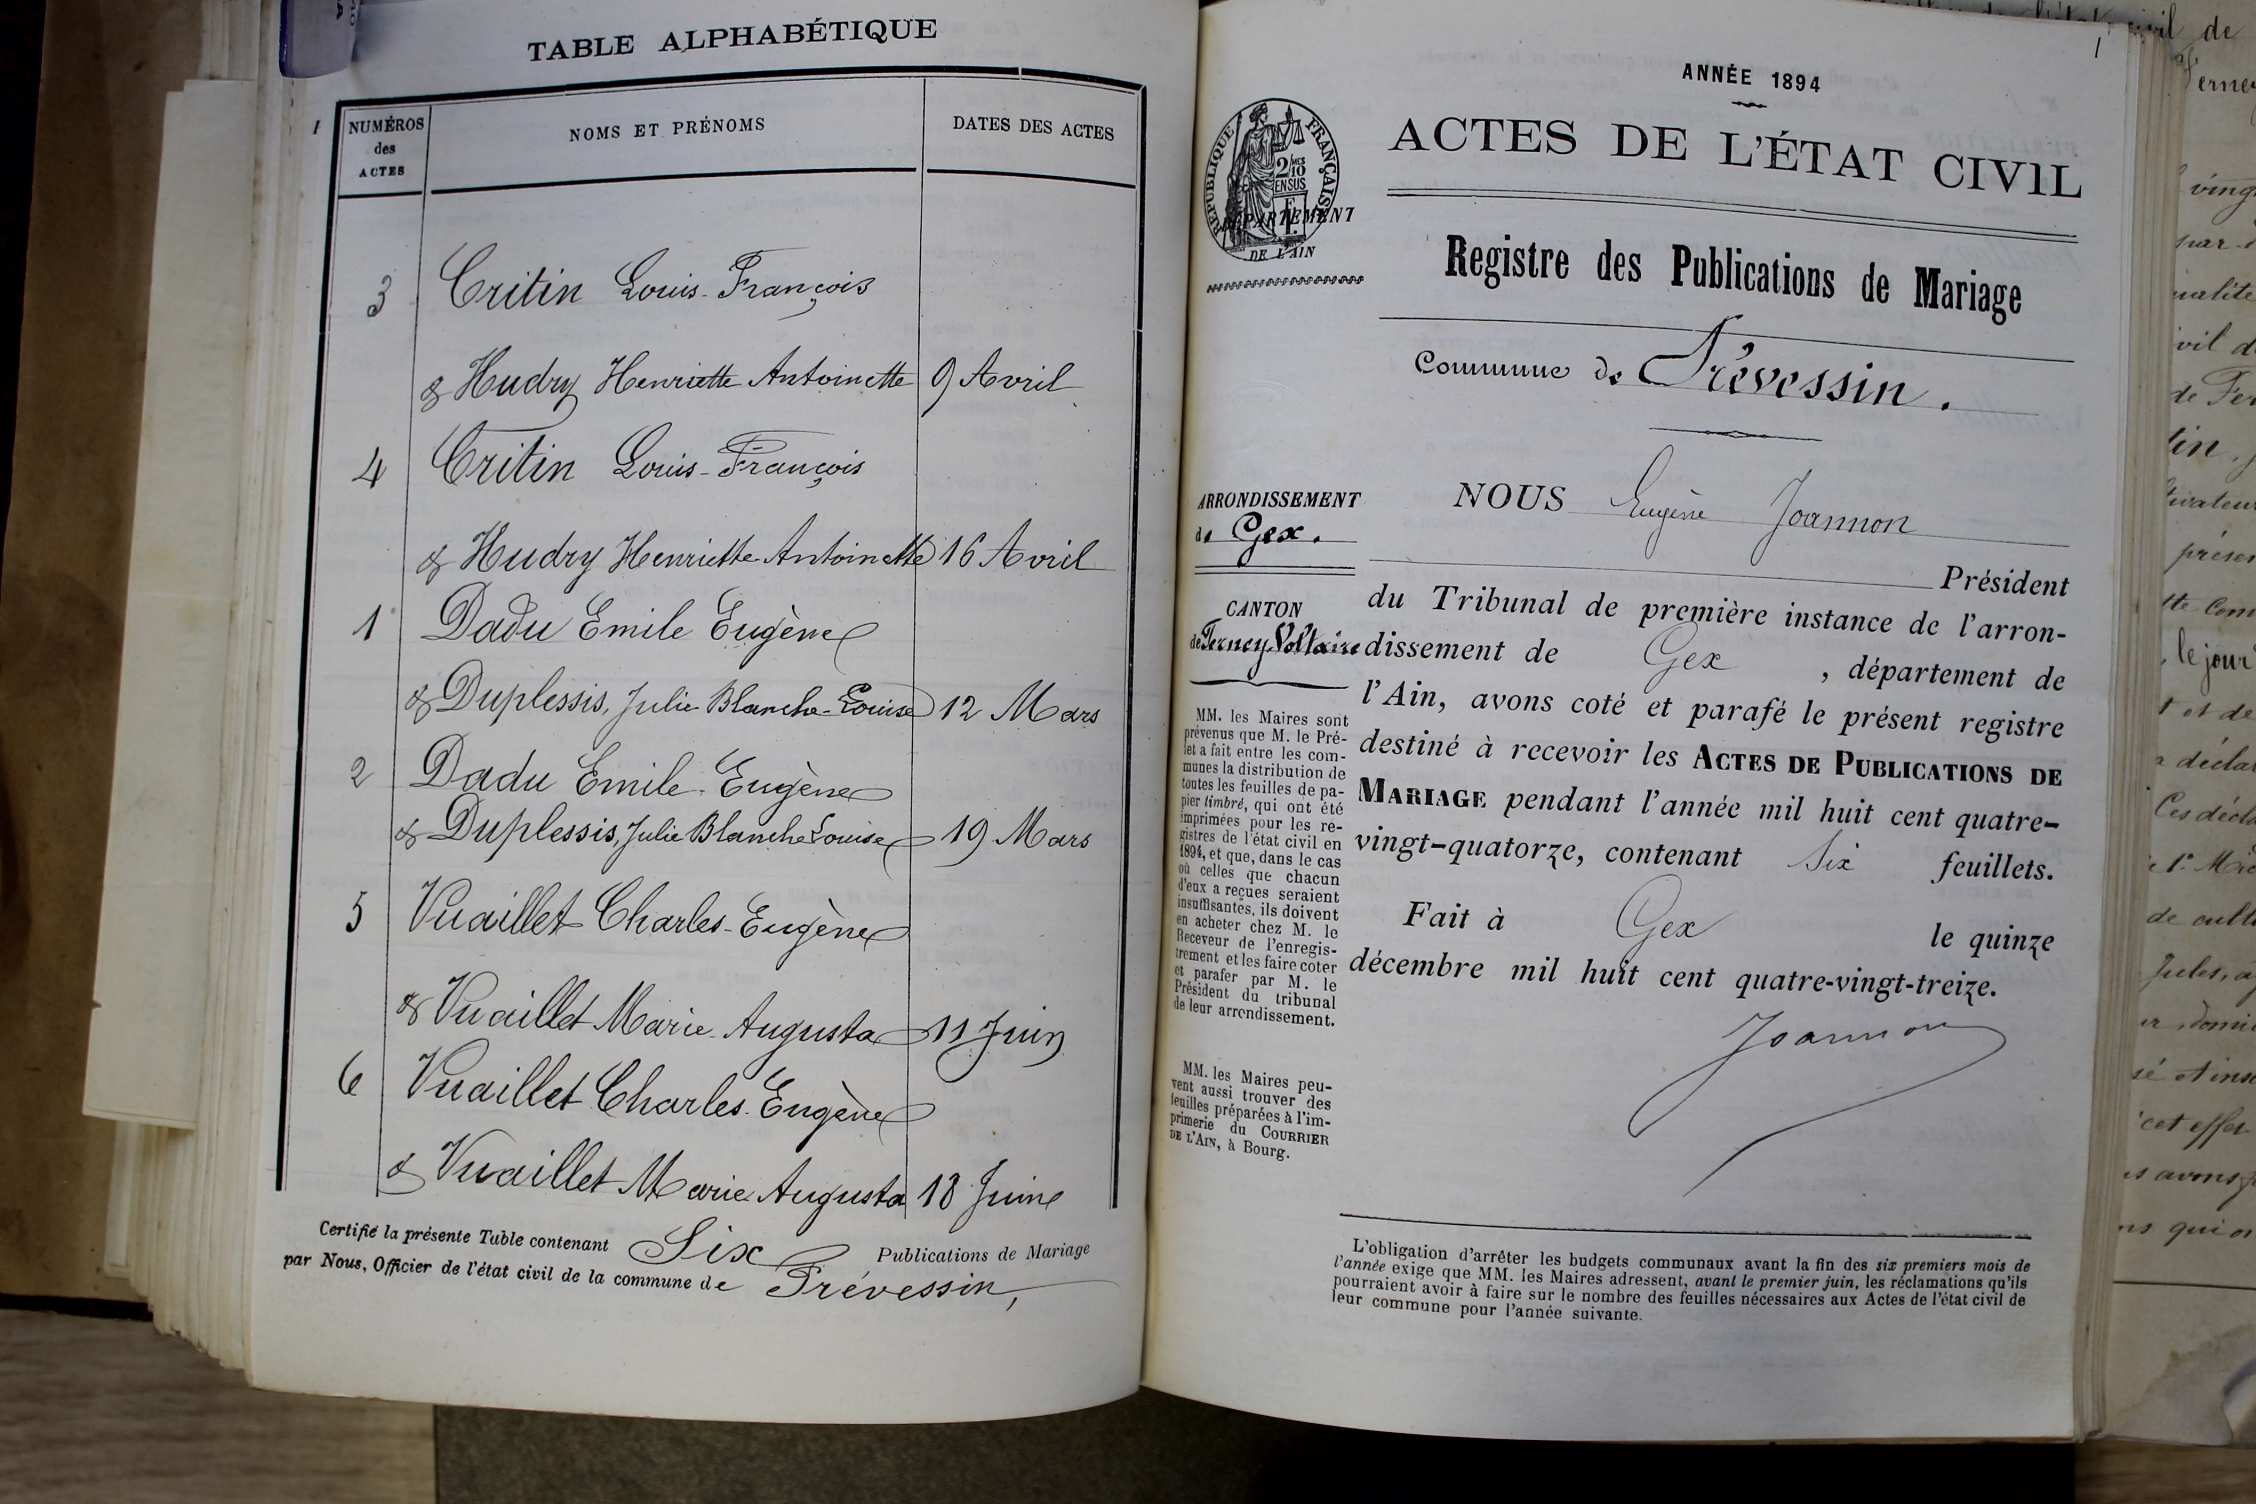 TABLE ALPHABÉTIQUE
NUMÉROS
des
ACTES
NOMS ET PRÉNOMS
DATES DES ACTES
3 Critin Louis-François
& Hudry Henriette Antoinette 9 Avril
4 Critin Louis-François
& Hudry Henriette Antoinette 16 Avril
1 Dadu Emile Eugène
& Duplessis, Julie Blanche-Louise 12 Mars
2 Dadu Emile-Eugène
& Duplessis, Julie Blanche Louise 19 Mars
5 Vuaillet Charles-Eugène
& Vuaillet Marie-Augusta 11 Juin
6 Vuaillet Charles-Eugène
& Vuaillet Marie Augusta 18 Juin
Certifié la présente Table contenant Six Publications de Mariage
par Nous, Officier de l'état civil de la commune de Prévessin,
1
ANNÉE 1894
ACTES DE L'ÉTAT CIVIL
RÉPUBLIQUE FRANÇAISE
DÉPARTEMENT
DE L'AIN
Registre des Publications de Mariage
Commune de Prévessin.
ARRONDISSEMENT
de Gex.
CANTON
de Ferney-Voltaire
MM. les Maires sont
prévenus que M. le Pré-
fet a fait entre les com-
munes la distribution de
toutes les feuilles de pa-
pier timbré, qui ont été
imprimées pour les re-
gistres de l'état civil en
1894, et que, dans le cas
où celles que chacun
d'eux a reçues seraient
insuffisantes, ils doivent
en acheter chez M. le
Receveur de l'enregis-
trement et les faire coter
et parafer par M. le
Président du tribunal
de leur arrondissement.
MM. les Maires peu-
vent aussi trouver des
feuilles préparées à l'im-
primerie du COURRIER
DE L'AIN, à Bourg.
NOUS Eugène Joannon
Président
du Tribunal de première instance de l'arron-
dissement de Gex, département de
l'Ain, avons coté et parafé le présent registre
destiné à recevoir les ACTES DE PUBLICATIONS DE
MARIAGE pendant l'année mil huit cent quatre-
vingt-quatorze, contenant six feuillets.
Fait à Gex le quinze
décembre mil huit cent quatre-vingt-treize.
Joannon
L'obligation d'arrêter les budgets communaux avant la fin des six premiers mois de
l'année exige que MM. les Maires adressent, avant le premier juin, les réclamations qu'ils
pourraient avoir à faire sur le nombre des feuilles nécessaires aux Actes de l'état civil de
leur commune pour l'année suivante.
civil de
le jour
de
cet effet